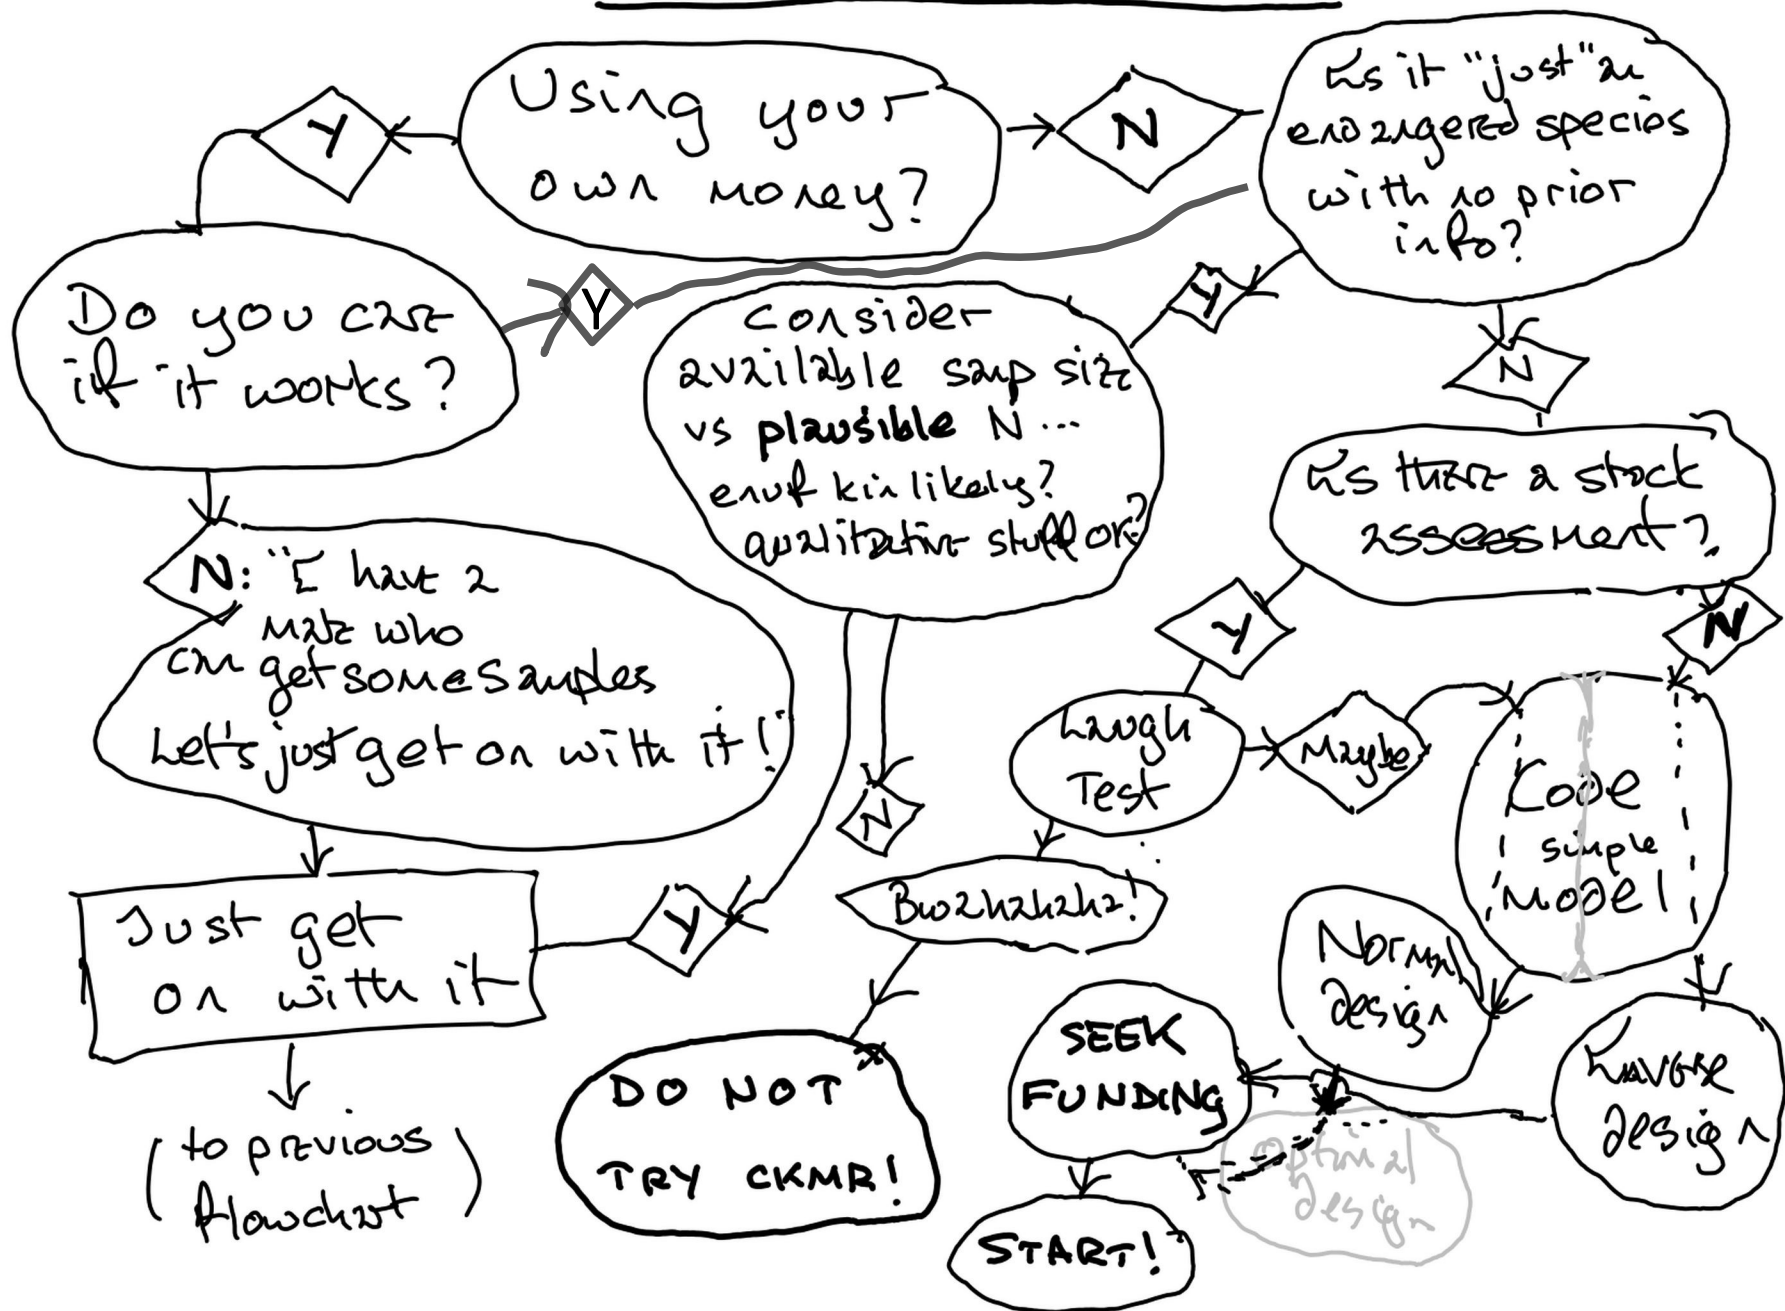 Using your
own money?
Y
N
Is it "just" an
endangered species
with no prior
info?
Do you care
if it works?
Y
Y
N
Consider
available samp size
vs plausible N ...
enuf kin likely?
qualitative stuff OK?
Is there a stock
assessment?
N: "I have a
mate who
can get some samples
Let's just get on with it!"
Y
N
Laugh
Test
Maybe
Code
simple
model
N
Bwahahaha!
Just get
on with it
Y
Normal
design
SEEK
FUNDING
design
DO NOT
TRY CKMR!
Optimal
design
(to previous
flowchart)
START!